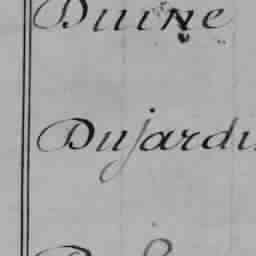 Duine
Dujardi